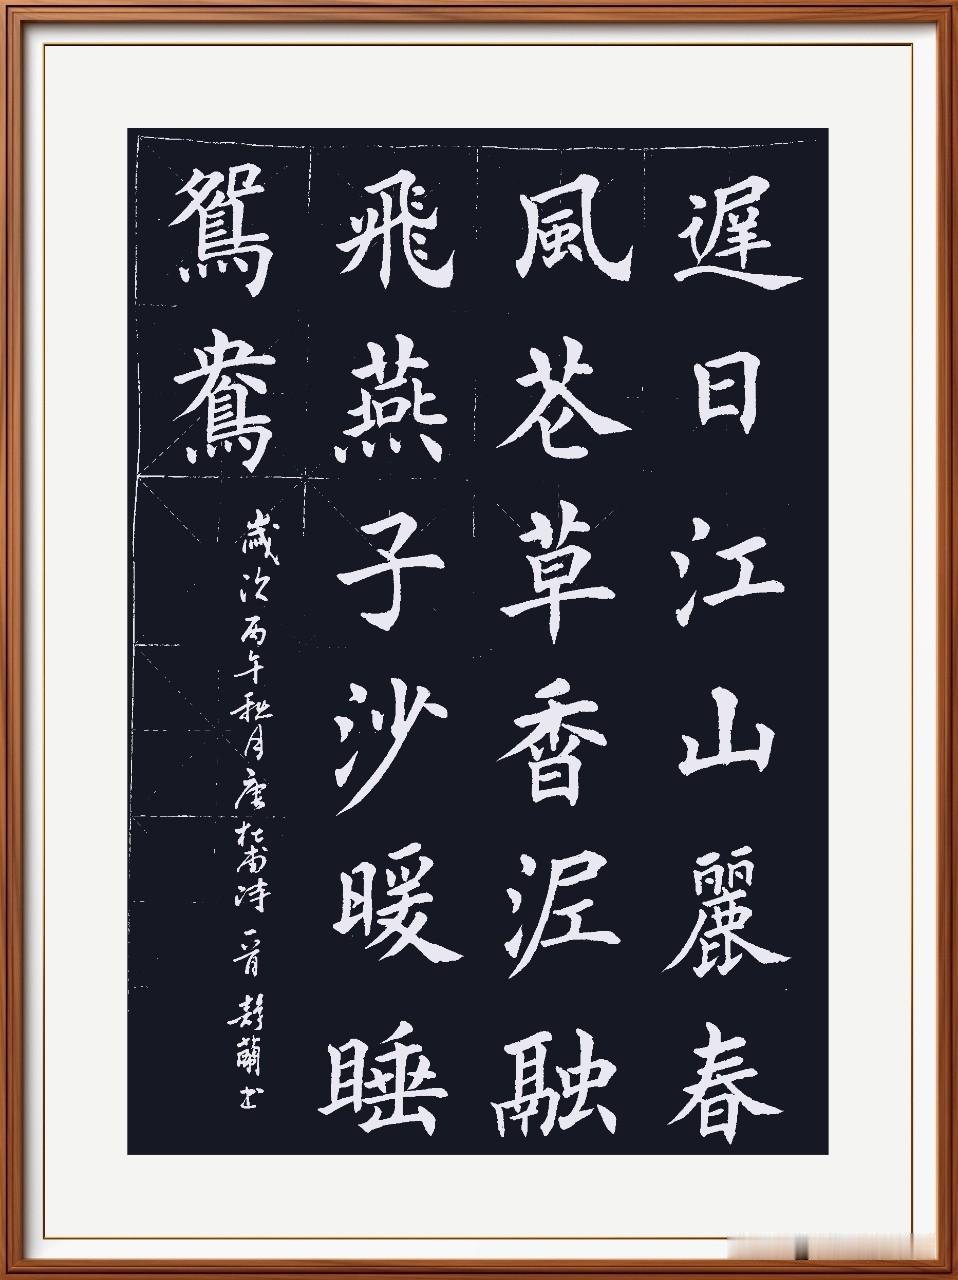 遲日江山麗春
風花草香泥融
飛燕子沙暖睡
鴛鴦
歲次丙午秋月唐杜甫詩 靜蘭书